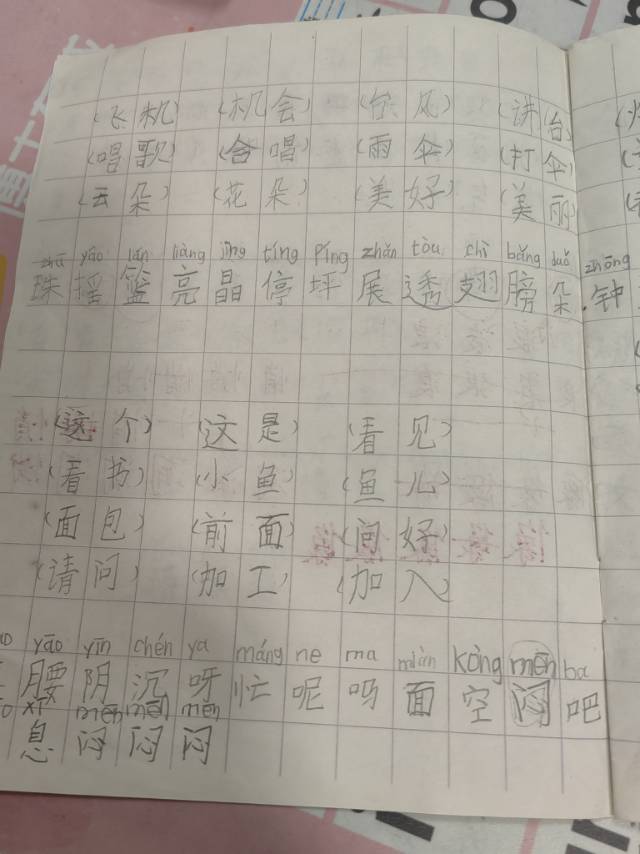 (飞机) (机会) (台风) (讲台)
(唱歌) (合唱) (雨伞) (打伞)
(云朵) (花朵) (美好) (美丽)
zhū yáo lán liàng jīng tíng píng zhǎn tòu chì bǎng duǒ zhōng
珠 摇 篮 亮 晶 停 坪 展 透 翅 膀 朵 钟
(这个) (这是) (看见)
(看书) (小鱼) (鱼儿)
(面包) (前面) (问好)
(请问) (加工) (加入)
yāo yīn chén ya máng ne ma miàn kōng mēn ba
腰 阴 沉 呀 忙 呢 吗 面 空 闷 吧
xī mēn mēn mēn
息 闷 闷 闷